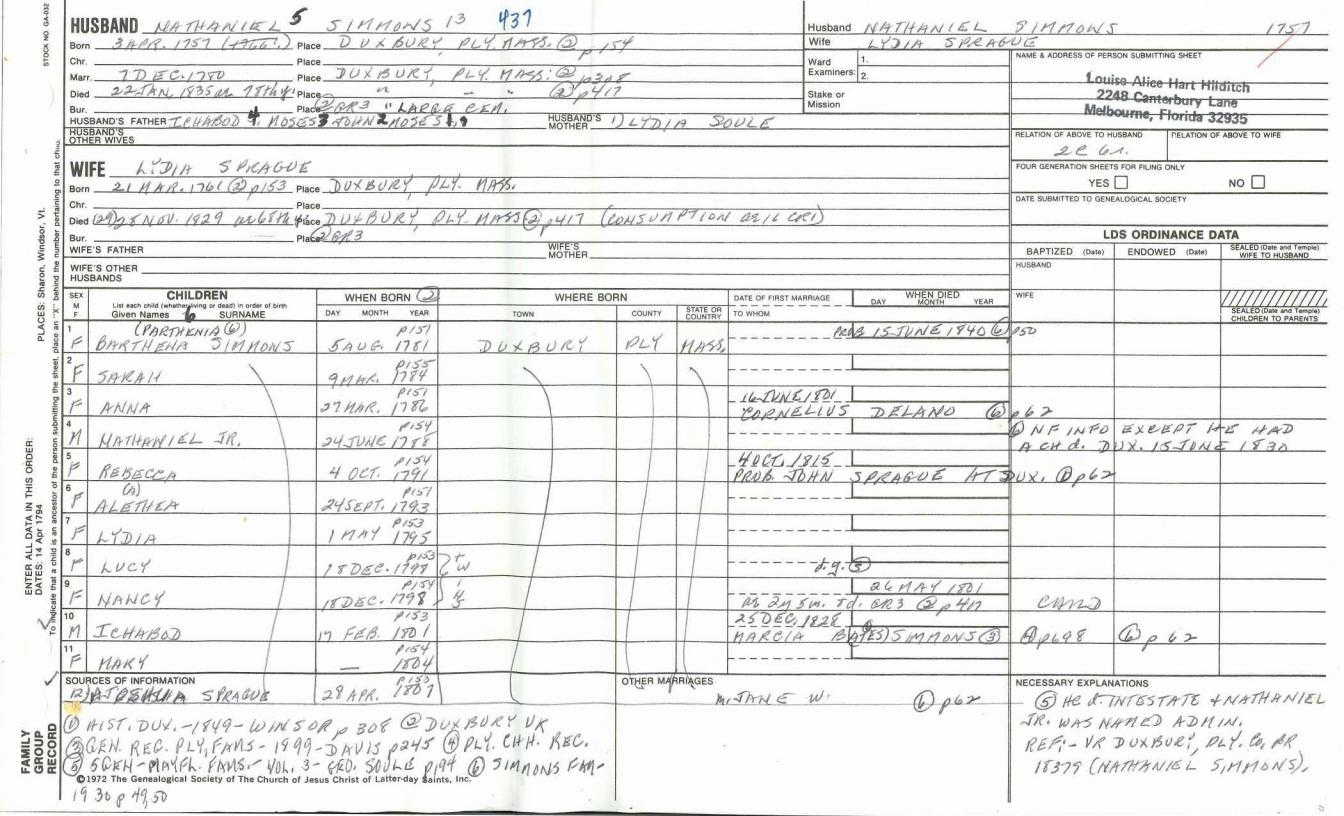 STOCK NO. GA-032
HUSBAND NATHANIEL 5 SIMMONS 13 437
Born 3 APR. 1757 Place DUXBURY, PLY. MASS. ② p154
Chr. Place
Marr. 7 DEC. 1780 Place DUXBURY, PLY. MASS. ② p308
Died 22 JAN. 1835 in 78th yr Place " - " ② p417
Bur. Place ② GR3 "LARGE CEM.
HUSBAND'S FATHER ICHABOD 4 MOSES 3 JOHN 2 MOSES 1 HUSBAND'S MOTHER 1) LYDIA SOULE
HUSBAND'S OTHER WIVES
WIFE LYDIA SPRAGUE
Born 21 MAR. 1761 ② p153 Place DUXBURY, PLY. MASS.
Chr. Place
Died (29) 28 NOV. 1829 Place DUXBURY, PLY. MASS ② p417 (CONSUMPTION
Bur. Place ② GR3
WIFE'S FATHER WIFE'S MOTHER
WIFE'S OTHER HUSBANDS
Husband NATHANIEL SIMMONS 1757
Wife LYDIA SPRAGUE
Ward Examiners: 1.
2.
Stake or Mission
NAME & ADDRESS OF PERSON SUBMITTING SHEET
Louise Alice Hart Hilditch
2248 Canterbury Lane
Melbourne, Florida 32935
RELATION OF ABOVE TO HUSBAND RELATION OF ABOVE TO WIFE
FOUR GENERATION SHEETS FOR FILING ONLY
YES NO
DATE SUBMITTED TO GENEALOGICAL SOCIETY
LDS ORDINANCE DATA
BAPTIZED (Date) ENDOWED (Date) SEALED (Date and Temple) WIFE TO HUSBAND
HUSBAND
WIFE
SEALED (Date and Temple) CHILDREN TO PARENTS
SEX M F CHILDREN WHEN BORN ② WHERE BORN DATE OF FIRST MARRIAGE WHEN DIED
List each child (whether living or dead) in order of birth
Given Names 6 SURNAME DAY MONTH YEAR TOWN COUNTY STATE OR COUNTRY TO WHOM DAY MONTH YEAR
(PARTHENIA ⑥) p151 PROB 15 JUNE 1840 ⑥ p50
1 F BARTHENA SIMMONS 5 AUG. 1781 DUXBURY PLY MASS.
p155
2 F SARAH 9 MAR. 1784
p151 16 JUNE 1801
3 F ANNA 27 MAR. 1786 CORNELIUS DELANO ⑥ p62
p154 ⑥ NF INFO EXCEPT HE HAD
4 M NATHANIEL JR. 24 JUNE 1788 A CH d. DUX. 15 JUNE 1830
p154 4 OCT. 1815
5 F REBECCA 4 OCT. 1791 PROB. JOHN SPRAGUE AT DUX. ⑥ p62
(A) p151
6 F ALETHEA 24 SEPT. 1793
p153
7 F LYDIA 1 MAY 1795
p153
8 F LUCY 18 DEC. 1798 d.y. ⑤
p154 26 MAY 1801
9 F NANCY 18 DEC. 1798 ae 2y 5m. 7d. GR3 ② p417 CHILD
p153 25 DEC. 1828
10 M ICHABOD 17 FEB. 1801 MARCIA B(ATES) SIMMONS ③ ④ p698 ⑥ p62
p154
11 F MARY — 1804
SOURCES OF INFORMATION p153 OTHER MARRIAGES NECESSARY EXPLANATIONS
12) SPRAGUE 28 APR. 1807 m. JANE W. ⑥ p62
① HIST. DUX. -1849- WINSOR p 308 ② DUXBURY VR
③ GEN. REG. PLY, FAMS - 1899 - DAVIS p245 ④ PLY. CHH. REC.
⑤ 5GEN - MAYFL. FAMS. - VOL. 3 - GEO. SOULE p194 ⑥ SIMMONS FAM-
©1972 The Genealogical Society of The Church of Jesus Christ of Latter-day Saints, Inc.
1930 p 49,50
⑤ HE d. INTESTATE + NATHANIEL
JR. WAS NAMED ADMIN.
REF:- VR DUXBURY, PLY. CO, PR
18379 (NATHANIEL SIMMONS).
ENTER ALL DATA IN THIS ORDER:
DATES: 14 Apr 1794 PLACES: Sharon, Windsor, Vt.
To indicate that a child is an ancestor of the person submitting the sheet, place an "X" behind the number pertaining to that child.
FAMILY
GROUP
RECORD